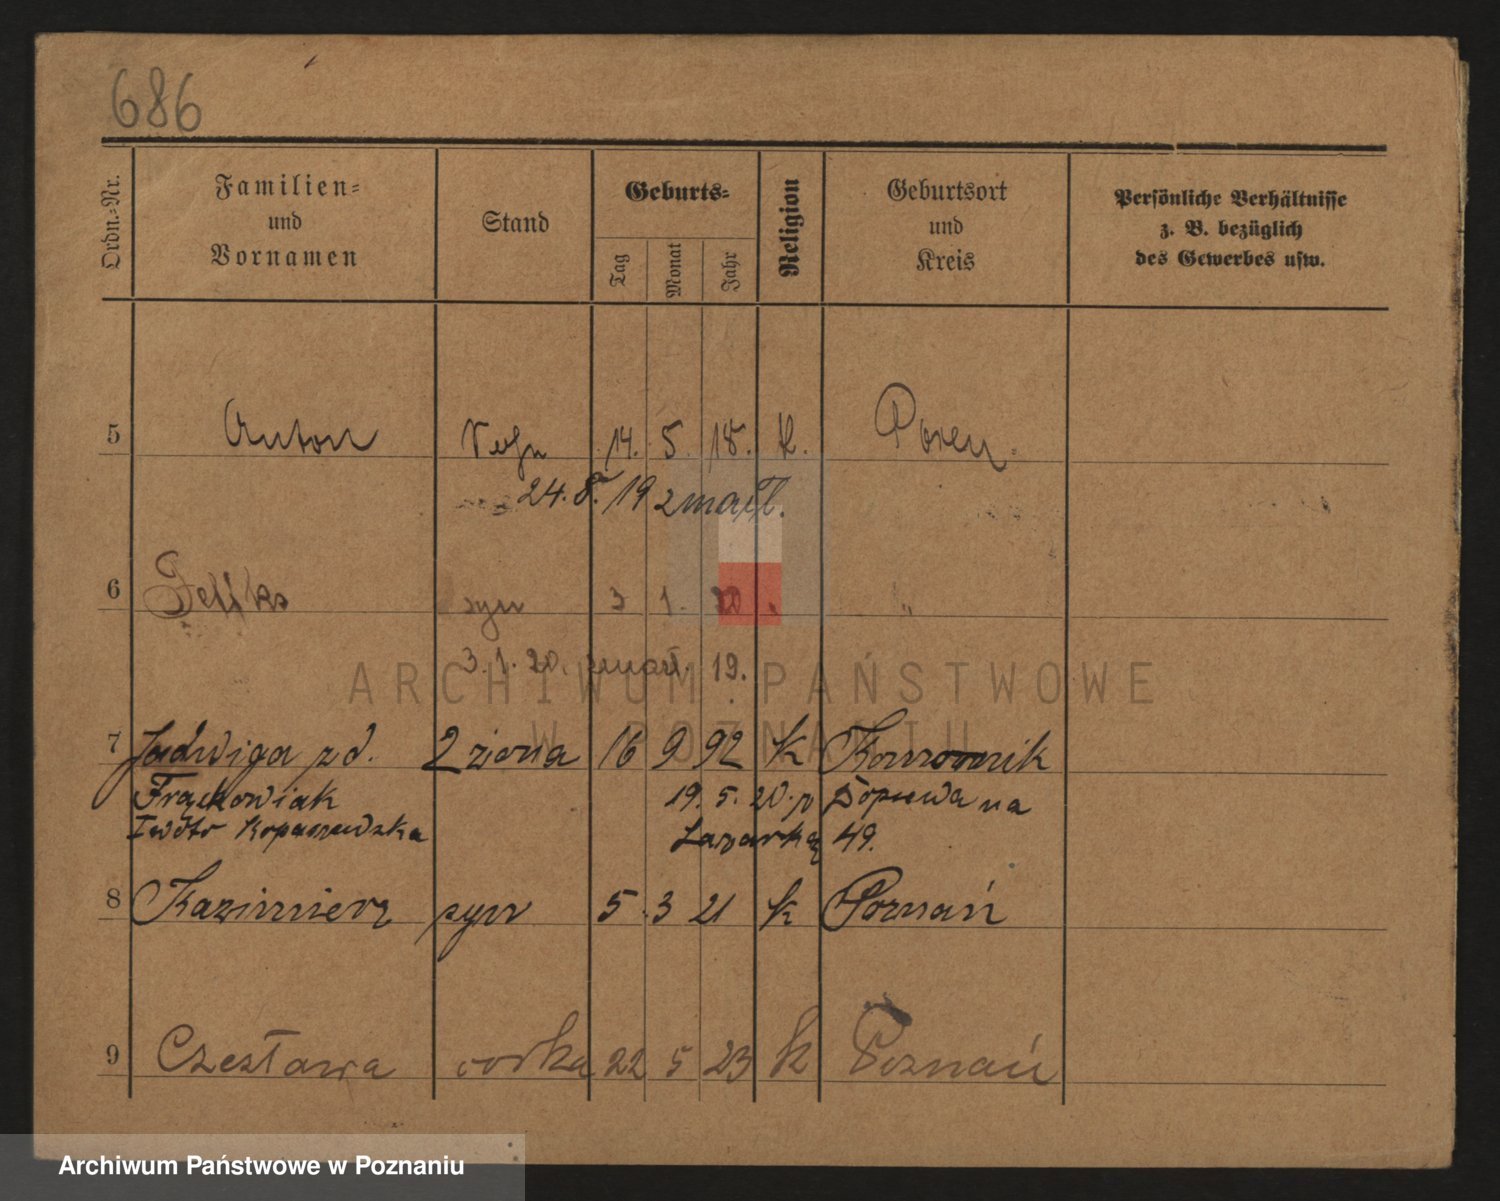 686
Ordn.-Nr. Familien- und Vornamen Stand Geburts- Tag Monat Jahr Religion Geburtsort und Kreis Persönliche Verhältnisse z. B. bezüglich des Gewerbes usw.
5 Anton 14. 5. 18. K. Posen
24. 8. 19 zmarł.
6 syn 3 1. 20 "
3. 1. 20. zmarł. 19.
7 Jadwiga zd. 2 żona 16 9 92 k
Frąckowiak 19. 5. 20. na
49.
8 Kazimierz syn 5 3 21 k Poznań
9 Czesława córka 22 5 23 k Poznań
ARCHIWUM PAŃSTWOWE
W POZNANIU
Archiwum Państwowe w Poznaniu